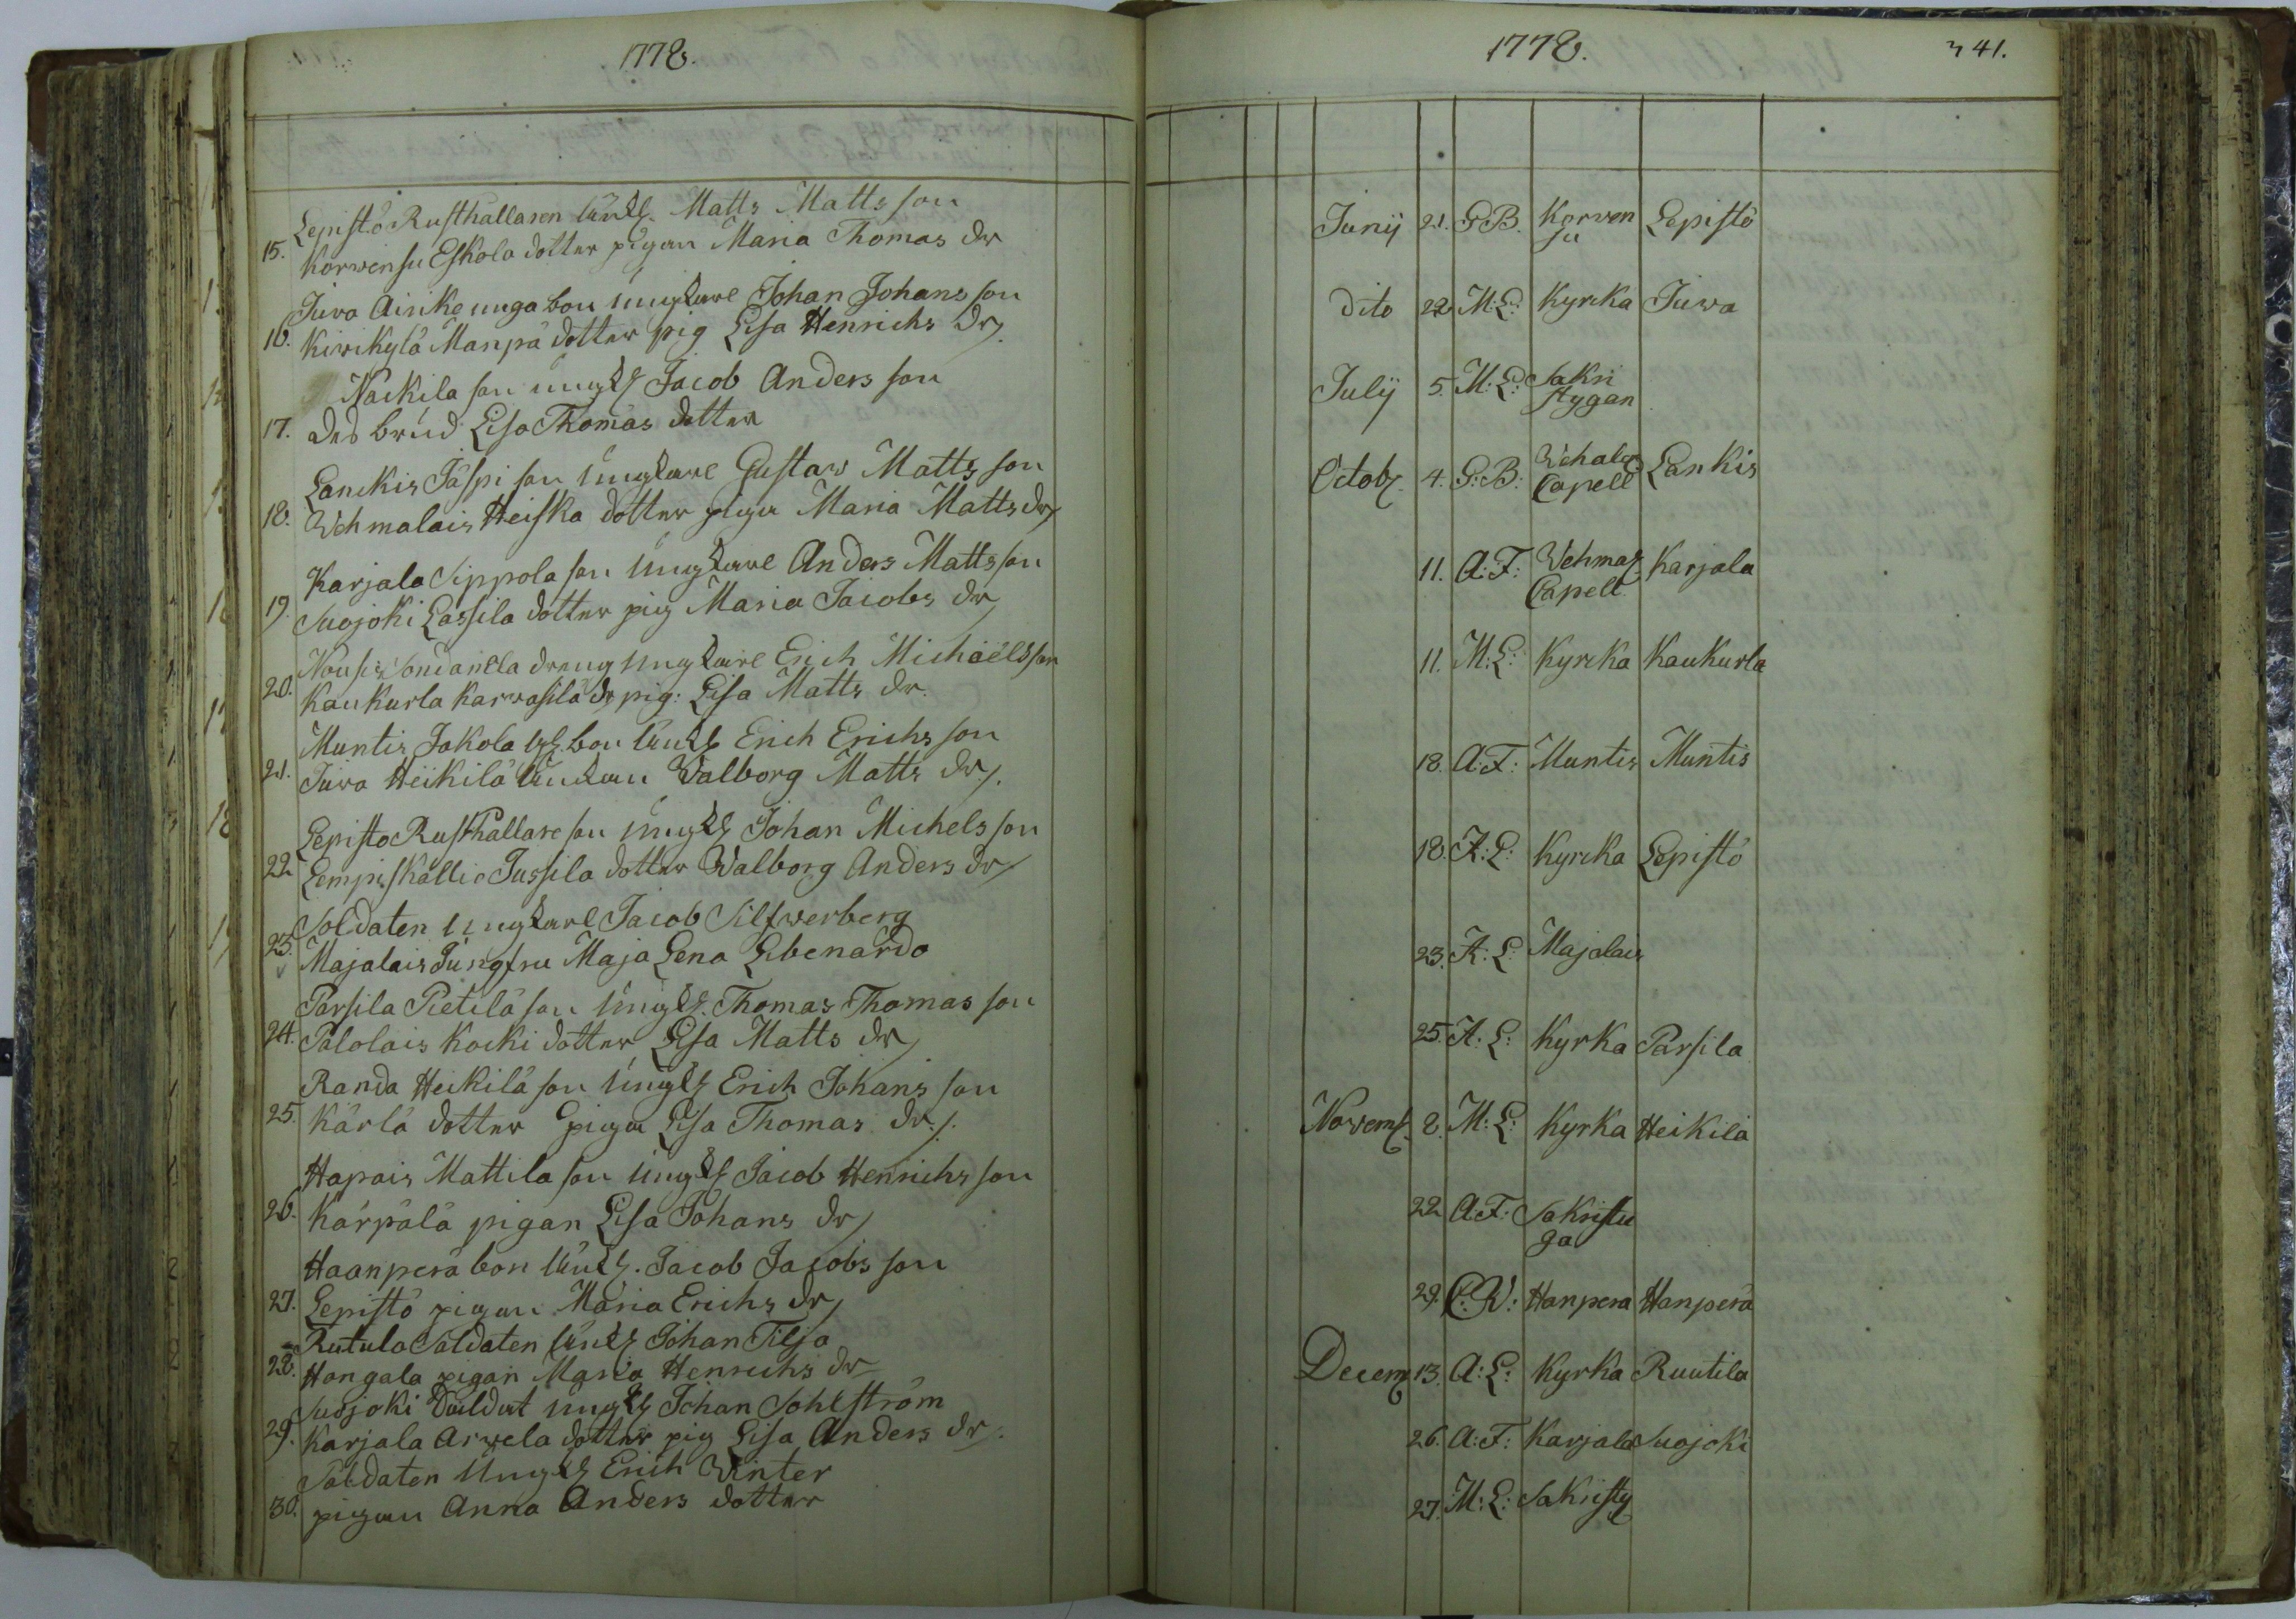 1778.
15. Lepistö Rusthållaren Änkl. Matts Mattsson
Korvensu Eskola dotter pigan Maria Thomas dr
16. Juva Airike unga bon ungkarl Johan Johansson
Kirikylä Manpä dotter pig Lisa Henrichs dr
17. Nackila son ungk Jacob Andersson
Des brud Lisa Thomas dotter
18. Lanckis Jäspi son ungkarl Gustav Mattsson
Vehmalais Heiska dotter piga Maria Matts dr
19. Karjala Sippola son ungkarl Anders Mattsson
Suojoki Lassila dotter pig Maria Jacobs dr
20. Nousis dreng ungkarl Erich Michaëlsson
Kaukurla Karvasila dr pig: Lisa Matts dr.
21. Muntis Jakola bon Änkl Erich Erichsson
Juva Heikilä Änkan Valborg Matts dr
22. Lepisto Rusthållare son ungk Johan Michelsson
Lempiskallio Jussila dotter Walborg Anders dr
23. Soldaten ungkarl Jacob Silfverberg
Majalais Jungfru Maja Lena Libenardo
24. Parsila Pietilä son ungk. Thomas Thomasson
Palolais Kocki dotter Lisa Matts dr
25. Randa Heikilä son ungk Erich Johansson
Kärlä dotter piga Lisa Thomas dr
26. Hapais Mattila son ungk Jacob Henrichsson
Kärpälä pigan Lisa Johans dr
27. Haanperä bon Änkl. Jacob Jacobsson
Lepistö pigan Maria Erichs dr
28. Rutula Soldaten Änkl Johan Tilja
Hangala pigan Maria Henrichs dr
29. Suojoki Soldat ungk Johan Sohlström
Karjala Arvela dotter pig Lisa Anders dr
30. Soldaten Ungk Erich Winter
pigan Anna Anders dotter
1778. 341.
Junij 21. G:B. Korven su Lepistö
dito 22 M:L: Kyrcka Juva
Julij 5. M:L: Sakri stygan
Octob. 4. G:B: Vehal Capell Lankis
11. A:F: Vehma Capell Karjala
11. M:L: Kyrcka Kaukurla
18. A:F: Muntis Muntis
18. A:L: Kyrcka Lepistö
23. A:L: Majalais
25. A:L: Kyrka Parsila
Novem. 8. M:L: Kyrka Heikila
22 A:F: Sakristu ga
29. C:W: Hanpera Hanperä
Decem 13. A:L: Kyrka Ruutila
26. A:F: Karjala Suojoki
27. M:L: Sakristy